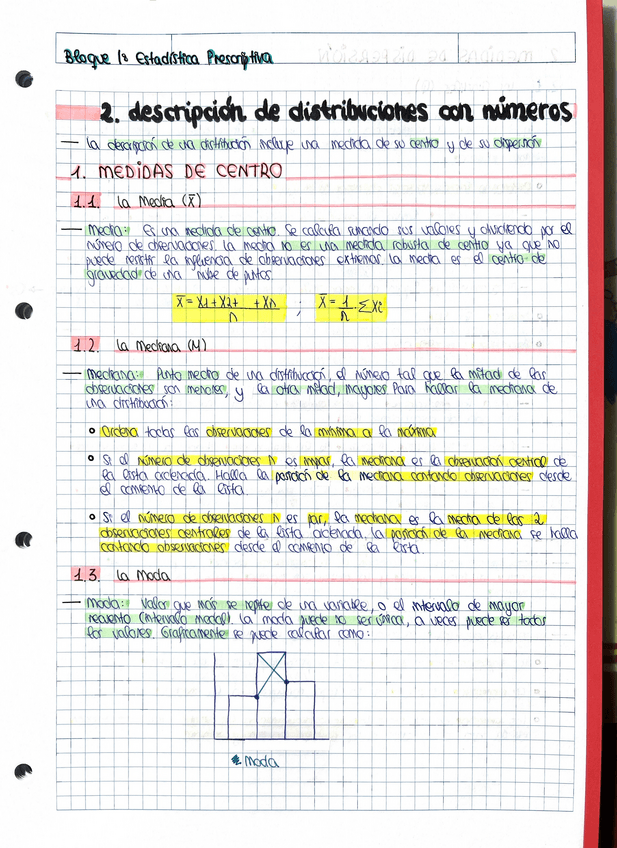 Bloque 1: Estadística Prescriptiva
2. descripción de distribuciones con números
— La descripción de una distribución incluye una medida de su centro y de su dispersión
1. MEDIDAS DE CENTRO
1.1. La Media (x̄)
— Media: Es una medida de centro. Se calcula sumando sus valores y dividiendo por el
número de observaciones. La media no es una medida robusta de centro ya que no
puede resistir la influencia de observaciones extremas. La media es el centro de
gravedad de una nube de puntos.
x̄ = x1+x2+...+xn / n ; x̄ = 1/n · Σxi
1.2. La Mediana (M)
— Mediana: Punto medio de una distribución, el número tal que la mitad de las
observaciones son menores, y la otra mitad, mayores. Para hallar la mediana de
una distribución:
° Ordena todas las observaciones de la mínima a la máxima
° Si el número de observaciones N es impar, la mediana es la observación central de
la lista ordenada. Halla la posición de la mediana contando observaciones desde
el comienzo de la lista.
° Si el número de observaciones N es par, la mediana es la media de las 2
observaciones centrales de la lista ordenada. La posición de la mediana se halla
contando observaciones desde el comienzo de la lista.
1.3. La Moda
— Moda: Valor que más se repite de una variable, o el intervalo de mayor
recuento (intervalo modal). La moda puede no ser única, a veces puede ser todos
los valores. Gráficamente se puede calcular como:
Moda